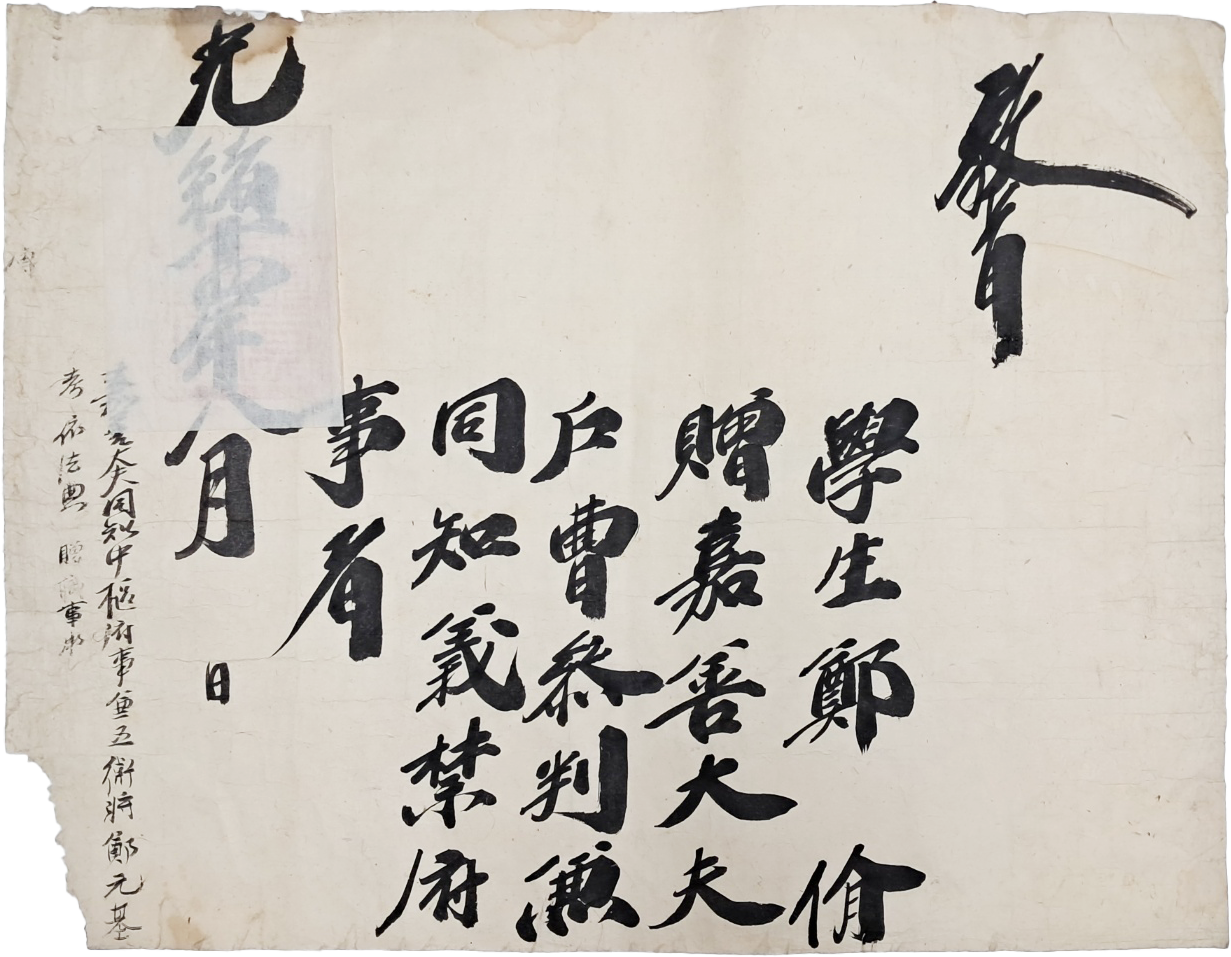 敎旨
學生鄭
贈嘉善大夫
戶曹叅判兼
同知義禁府
事者
光緖 年 月 日
嘉善大夫同知中樞府事兼五衛將鄭元基
考依法典 贈職事承
傳